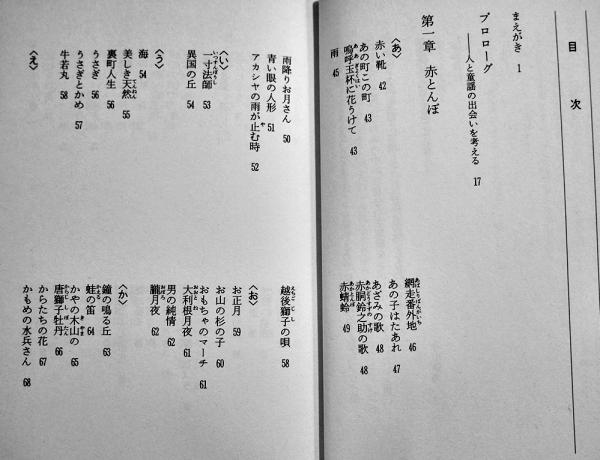 目次
まえがき 1
プロローグ
──人と童謡の出会いを考える 17
第一章 赤とんぼ
〈あ〉
赤い靴 42
あの町この町 43
嗚呼玉杯に花うけて 43
雨 45
網走番外地 46
あの子はたあれ 47
あざみの歌 48
赤胴鈴之助の歌 48
赤蜻蛉 49
雨降りお月さん 50
青い眼の人形 51
アカシヤの雨が止む時 52
〈い〉
一寸法師 53
異国の丘 54
〈う〉
海 54
美しき天然 55
裏町人生 56
うさぎ 56
うさぎとかめ 57
牛若丸 58
〈え〉
越後獅子の唄 58
〈お〉
お正月 59
お山の杉の子 60
おもちゃのマーチ 61
大利根月夜 61
男の純情 62
朧月夜 62
〈か〉
鐘の鳴る丘 63
蛙の笛 64
かやの木山の 65
唐獅子牡丹 66
からたちの花 67
かもめの水兵さん 68